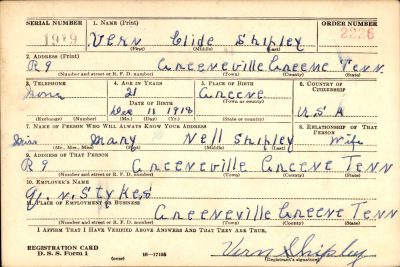 SERIAL NUMBER 1. NAME (Print) ORDER NUMBER
1919 Vern Clide Shipley 2226
(First) (Middle) (Last)
2. ADDRESS (Print)
R9 Greeneville Greene Tenn
(Number and street or R. F. D. number) (Town) (County) (State)
3. TELEPHONE 4. AGE IN YEARS 5. PLACE OF BIRTH 6. COUNTRY OF CITIZENSHIP
none 21 Greene
DATE OF BIRTH (Town or county)
Dec 11 1918 U S A
(Exchange) (Number) (Mo.) (Day) (Yr.) (State or country)
7. NAME OF PERSON WHO WILL ALWAYS KNOW YOUR ADDRESS 8. RELATIONSHIP OF THAT PERSON
Mary Nell Shipley Wife
(Mr., Mrs., Miss) (First) (Middle) (Last)
9. ADDRESS OF THAT PERSON
R9 Greeneville Greene Tenn
(Number and street or R. F. D. number) (Town) (County) (State)
10. EMPLOYER'S NAME
11. PLACE OF EMPLOYMENT OR BUSINESS
Greeneville Greene Tenn
(Number and street or R. F. D. number) (Town) (County) (State)
I AFFIRM THAT I HAVE VERIFIED ABOVE ANSWERS AND THAT THEY ARE TRUE.
REGISTRATION CARD Vern Shipley
D. S. S. Form 1 (over) 16—17105 (Registrant's signature)